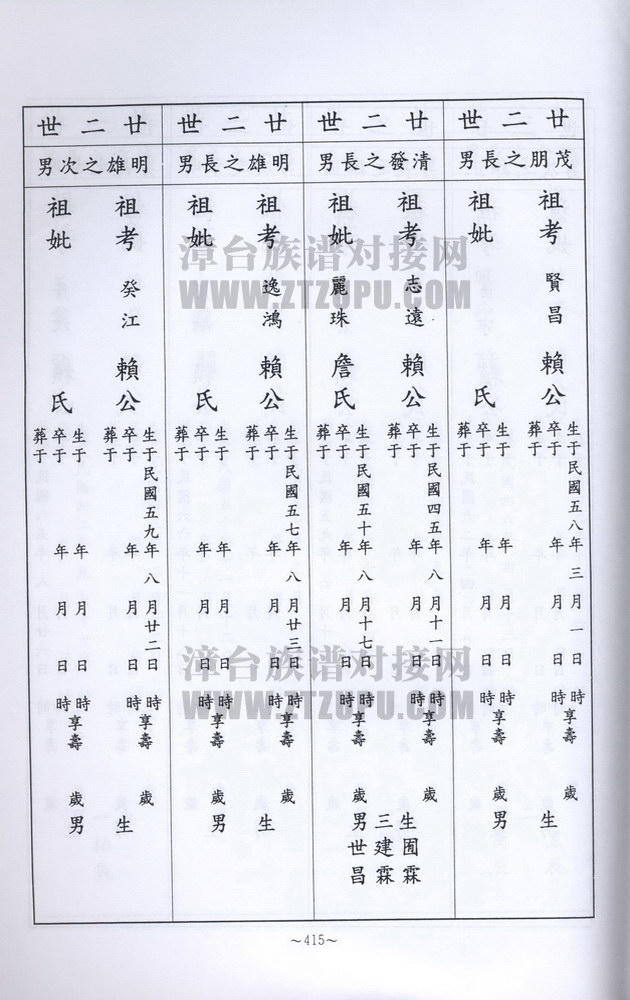 廿二世
茂朋之長男
祖考 賢昌 賴公
生于民國五八年三月一日時享壽歲
卒于年月日時
葬于
生
祖妣 氏
生于年月日時享壽歲
卒于年月日時
葬于
男
廿二世
清發之長男
祖考 志遠 賴公
生于民國四五年八月十一日時享壽歲
卒于年月日時
葬于
祖妣 麗珠 詹氏
生于民國五十年八月十七日時享壽歲
卒于年月日時
葬于
生囿霖
三建霖
男世昌
廿二世
明雄之長男
祖考 逸鴻 賴公
生于民國五七年八月廿三日時享壽歲
卒于年月日時
葬于
生
祖妣 氏
生于年月日時享壽歲
卒于年月日時
葬于
男
廿二世
明雄之次男
祖考 癸江 賴公
生于民國五九年八月廿二日時享壽歲
卒于年月日時
葬于
生
祖妣 氏
生于年月日時享壽歲
卒于年月日時
葬于
男
～415～
漳台族谱对接网
WWW.ZTZUPU.COM
漳台族谱对接网
WWW.ZTZUPU.COM